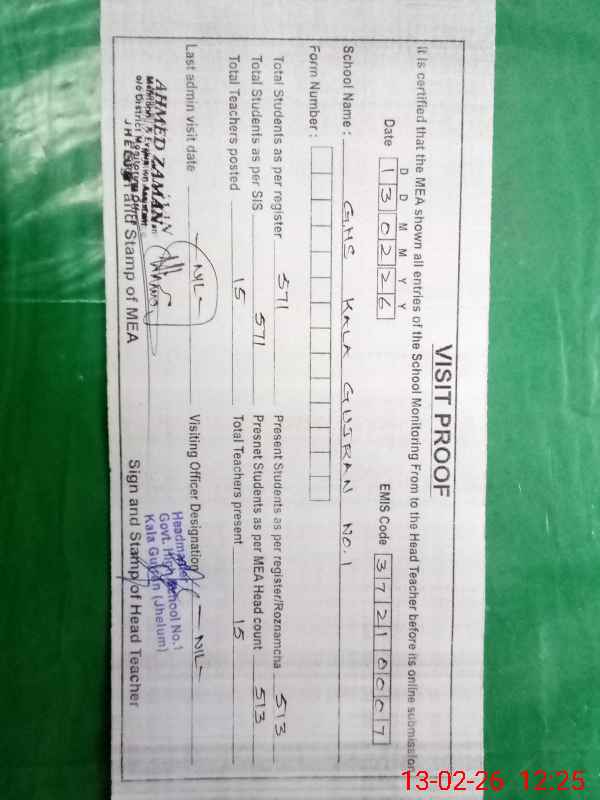 VISIT PROOF
It is certified that the MEA shown all entries of the School Monitoring From to the Head Teacher before its online submission
D D M M Y Y
Date 1 3 0 2 2 6 EMIS Code 3 7 2 1 0 0 0 7
School Name : GHS KALA GUJRAN NO.1
Form Number :
Total Students as per register 571 Present Students as per register/Roznamcha 513
Total Students as per SIS 571 Presnet Students as per MEA Head count 513
Total Teachers posted 15 Total Teachers present 15
Last admin visit date — NIL — Visiting Officer Designation — NIL —
AHMED ZAMAN
Monitoring & Evaluation Assistant
o/o District Monitoring Officer
JHELUM
Headmaster
Govt. High School No.1
Kala Gujran (Jhelum)
Sign and Stamp of MEA Sign and Stamp of Head Teacher
13-02-26 12:25